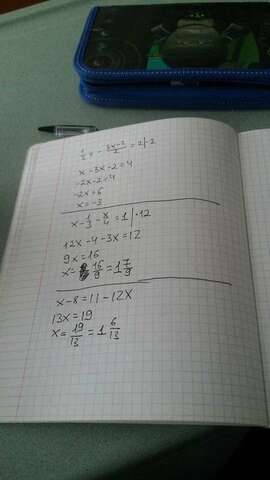 x - 3x - 2 = 4
-2x - 2 = 4
-2x = 6
x = -3
x - 1/3 - x/4 = 1 | · 12
12x - 4 - 3x = 12
9x = 16
x = 16/9 = 1 7/9
x - 8 = 11 - 12x
13x = 19
x = 19/13 = 1 6/13